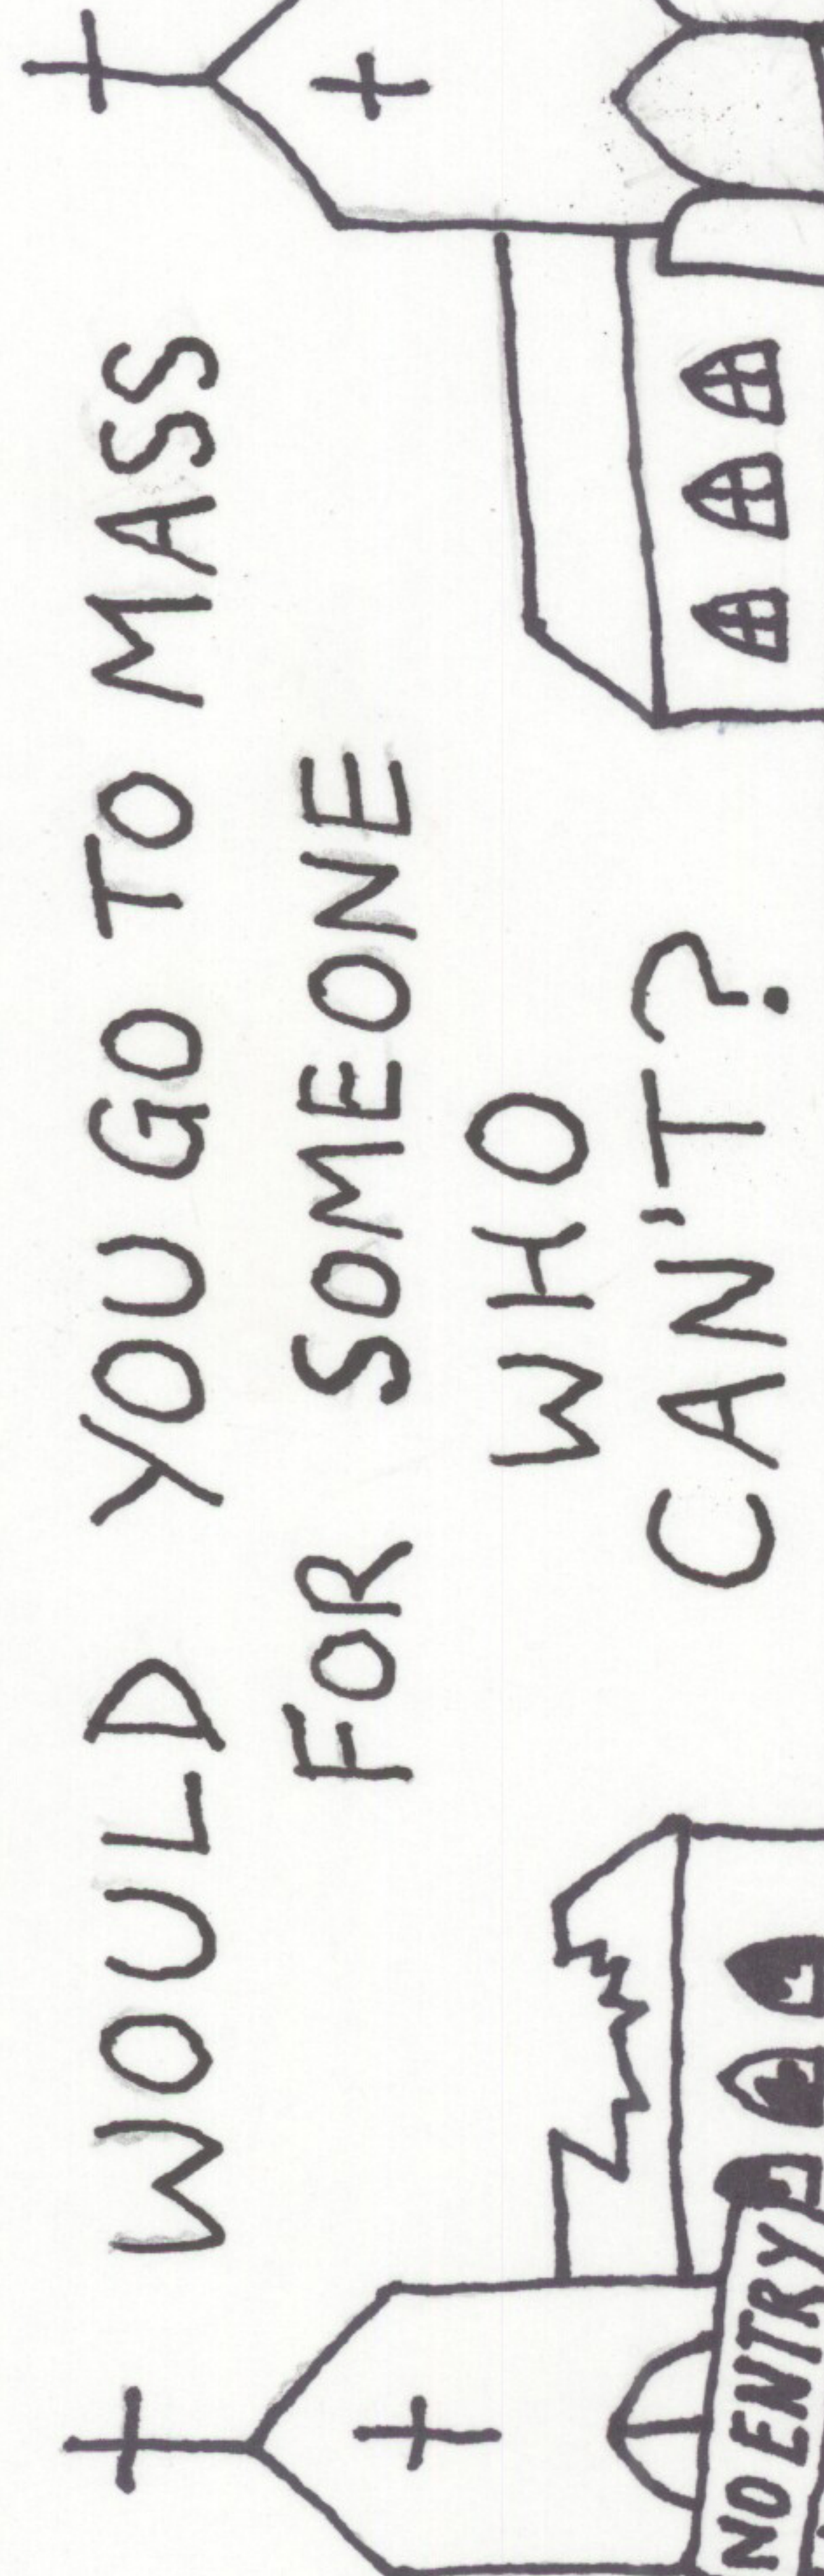 WOULD YOU GO TO MASS
FOR SOMEONE
WHO
CAN'T?
NO ENTRY